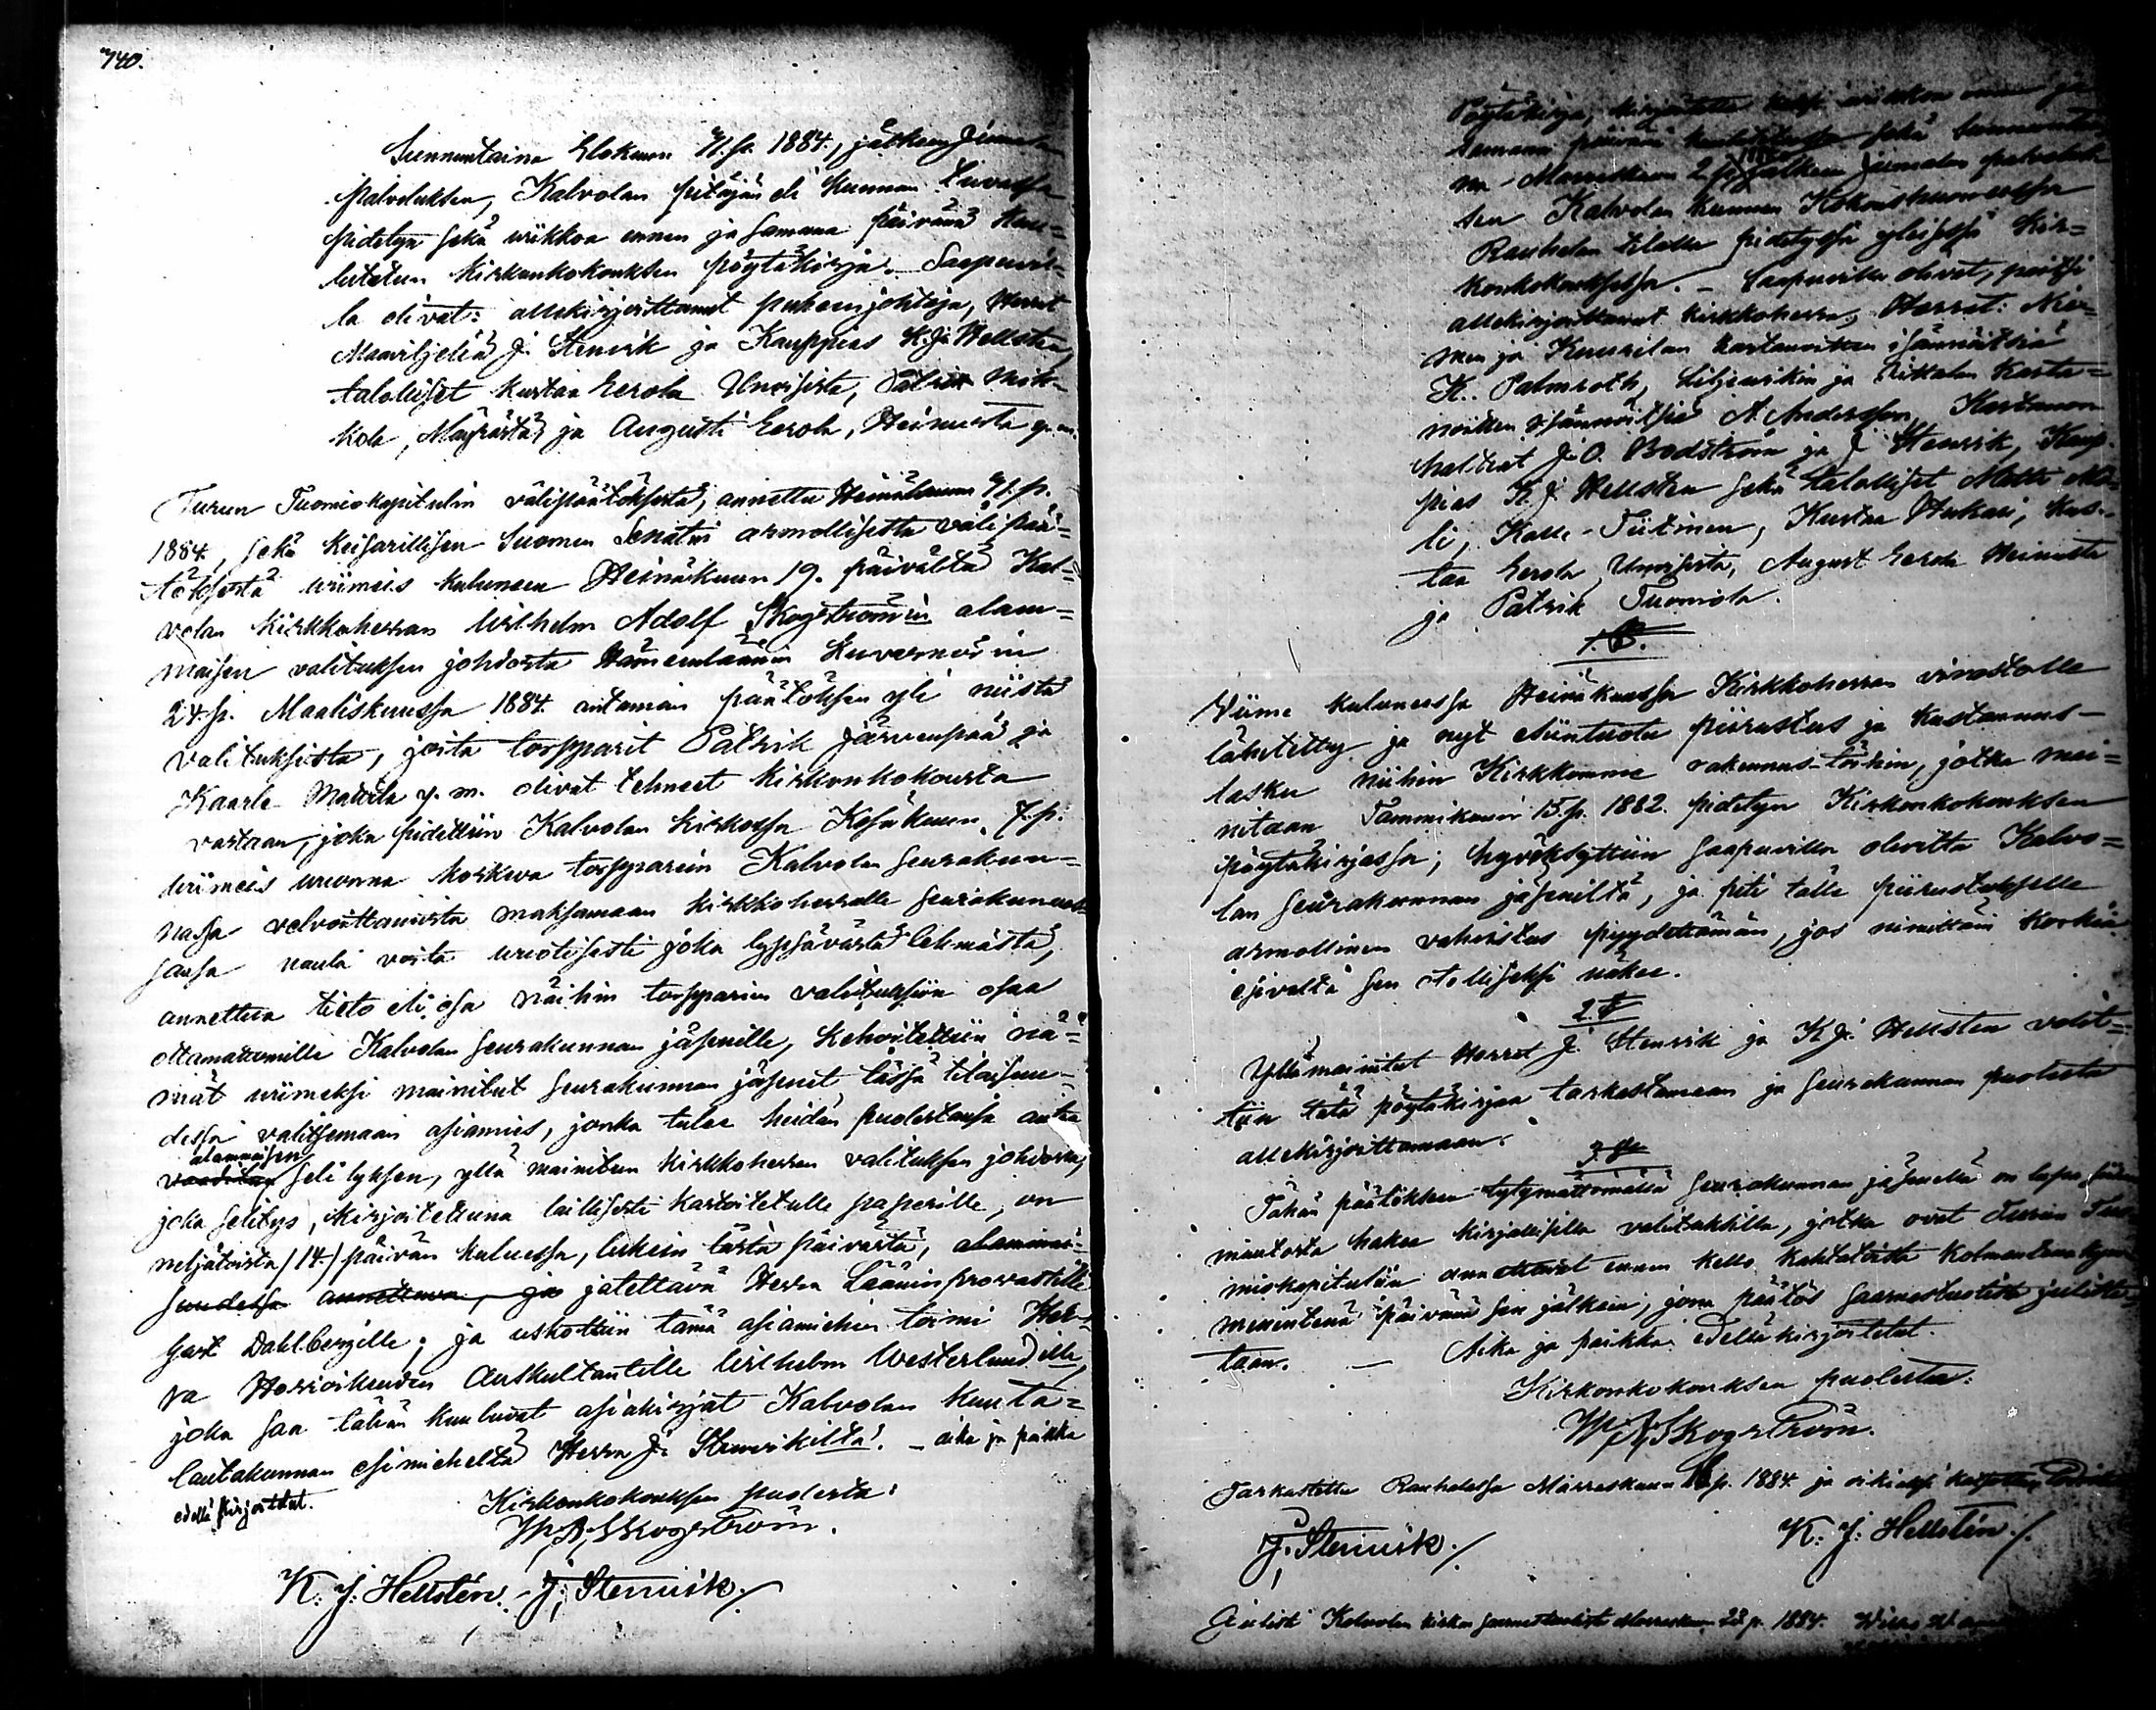 740.
Sunnuntaina Elokuun 31.p. 1884, jälkeen Jumalan
palveluksen, Kalvolan pitäjän eli kunnan tuvassa
pidetyn sekä wiikkoa ennen ja samana päivänä kuu=
lutetun kirkonkokouksen pöytäkirja. – Saapuvil=
la olivat: allekirjoittanut puheenjohtaja, Herrat
Maanviljeliä J. Stenvik ja Kauppias K. J. Hellsten,
talolliset Kustaa Eerola Unisista,
kola, ja Augusti Eerola, Heinusta y. m.
Turun Tuomiokapitulin välipäätöksestä, annettu Heinäkuun
1884, sekä Keisarillisen Suomen Senatin armollisesta välipää=
töksestä wiimeis kuluneen Heinäkuun 19. päivältä Kal=
volan Kirkkoherran Wilhelm Adolf Skogströmin alam=
maisen valituksen johdosta Hämeenläänin Kuvernöörin
24 p. Maaliskuussa 1884. antaman päätöksen yli niistä
valituksista, joita torpparit Patrik Järvenpää ja
Kaarle Mattila y. m. olivat tehneet kirkonkokousta
vastaan, joka pidettiin Kalvolan kirkossa Kesäkuun 7. p.
wiimeis wuonna koskeva torpparein Kalvolan seurakun=
nassa velvoittamista maksamaan kirkkoherralle seurakunnas=
sansa naula voita wuotisesti joka lypsävästä lehmästä,
annettua tieto eli osa näihin torpparien valituksiin osaa
ottamattomille Kalvolan seurakunnan jäsenille, kehoitettiin nä=
mät wiimeksi mainitut seurakunnan jäsenet tässä tilaisuu=
dessa valitsemaan asiamies, jonka tulee heidän puolestansa antaa
alammaisen
vaaditun selityksen, yllä mainitun kirkkoherran valituksen johdosta,
joka selitys, kirjoitettuna laillisesti kartoitetulle paperille, on
neljätoista /14./ päivän kuluessa, lukein tästä päivästä, alammai=
suudessa annettava, ja jätettävä Herra Lääninprovastille
Gust Dahlbergille; ja uskottiin tämä asiamiehen toimi
va Horioikeuden Auskultantille Wilhelm Westerlundille,
joka saa tähän kuuluvat asiakirjat Kalvolan kunta=
lautakunnan esimieheltä Herra J. Stenvikiltä. – aika ja paikka
edellä kirjoitetut.
Kirkonkokouksen puolesta:
W. A. Skogström.
K. J. Hellstén. J. Stenvik./.
Pöytäkirja, kirjoitettu wiikkoa ennen ja
samana päivänä kuulutetussa sekä sunnuntai=
na Marraskuun 2 p. jälkeen Jumalan palveluk=
sen Kalvolan kunnan Kokoushuoneessa
Rauhalan tilalla pidetyssä yleisessä kir=
konkokouksessa. – Saapuvilla olivat, paitsi
allekirjoittanut kirkkoherra, Herrat: Nie=
men ja Kuurilan kartanoitten isännöitsiä
K. Palmroth, ja kartanoitten
isännöitsiä A. Andersson, Kartanon
haltiat J. O. Bodström ja J. Stenvik, Kaup=
pias K. J. Hellsten sekä talolliset Matti
li, Kalle Tiitinen, Kustaa Hukari, Kus=
taa Eerola Unisista, August Eerola Heinusta
ja Patrik Tuomola.
1. §.
Viime kuluneessa Heinäkuussa Kirkkoherran virastolle
lähetetty ja nyt esiintuotu piirustus ja kustannus=
lasku niihin Kirkkomme rakennus-töihin, jotka mai=
nitaan Tammikuun 15. p. 1882. pidetyn Kirkonkokouksen
pöytäkirjassa; hyväksyttiin saapuvilla olevilta Kalvo=
lan seurakunnan jäseniltä, ja piti tälle piirustukselle
armollinen vahvistus pyydettämän, jos nimittäin Korkia
esivalta sen otolliseksi näkee.
2. §
Yllämainitut Herrat J. Stenvik ja K. J. Hellsten valit=
tiin tätä pöytäkirjaa tarkastamaan ja seurakunnan puolesta
allekirjoittamaan.
3. §.
Tähän päätökseen tytymättömällä seurakunnan jäsenellä on lupa
muutosta hakea kirjallisilla valituksilla, jotka ovat Turun Tuo=
miokapituliin annettavat ennen kello kahtatoista kolmantenakym=
menentenä päivänä sen jälkeen, jona päätös saarnastuolista juliste=
taan. – Aika ja paikka edelläkirjoitetut.
Kirkonkokouksen puolesta:
W. A. Skogström.
Tarkastettu Rauhalassa Marraskuun 16 p. 1884. ja oikiaksi
J. Stenvik./. K. J. Hellstén./.
Julisti Kalvolan kirkon saarnastuolista Marraskuun 23 p. 1884.